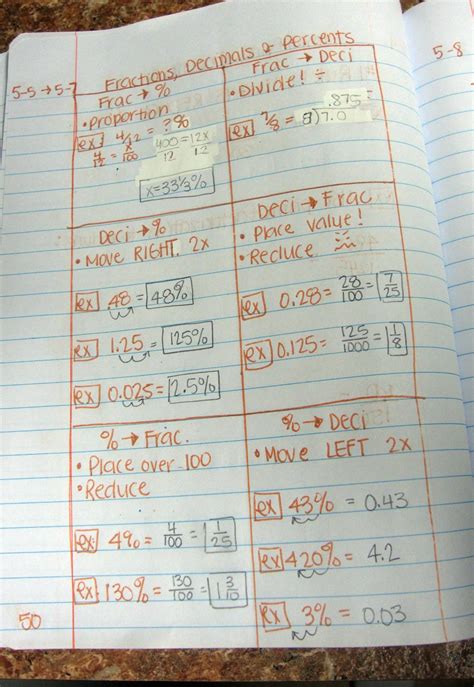 5-5 → 5-7
5-8
Fractions, Decimals & Percents
Frac → %
• Proportion
ex) 4/12 = ?%
4/12 = x/100
400 = 12x
12 12
x = 33 1/3 %
Frac → Deci
• Divide! ÷
.875 =
ex 7/8 = 8)7.0
Deci → %
• Move RIGHT 2x
ex .48 = 48%
ex 1.25 = 125%
ex 0.025 = 2.5%
Deci → Frac
• Place value!
• Reduce
ex 0.28 = 28/100 = 7/25
ex 0.125 = 125/1000 = 1/8
% → Frac.
• Place over 100
• Reduce
ex: 4% = 4/100 = 1/25
ex: 130% = 130/100 = 1 3/10
% → Deci
• Move LEFT 2x
ex 43% = 0.43
ex 420% = 4.2
ex 3% = 0.03
50